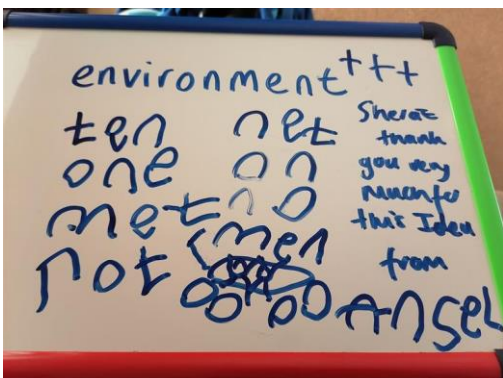 environment+++
ten net
one on
met no
not men
Sherat
thank
you very
much for
this Idea
from
Angel